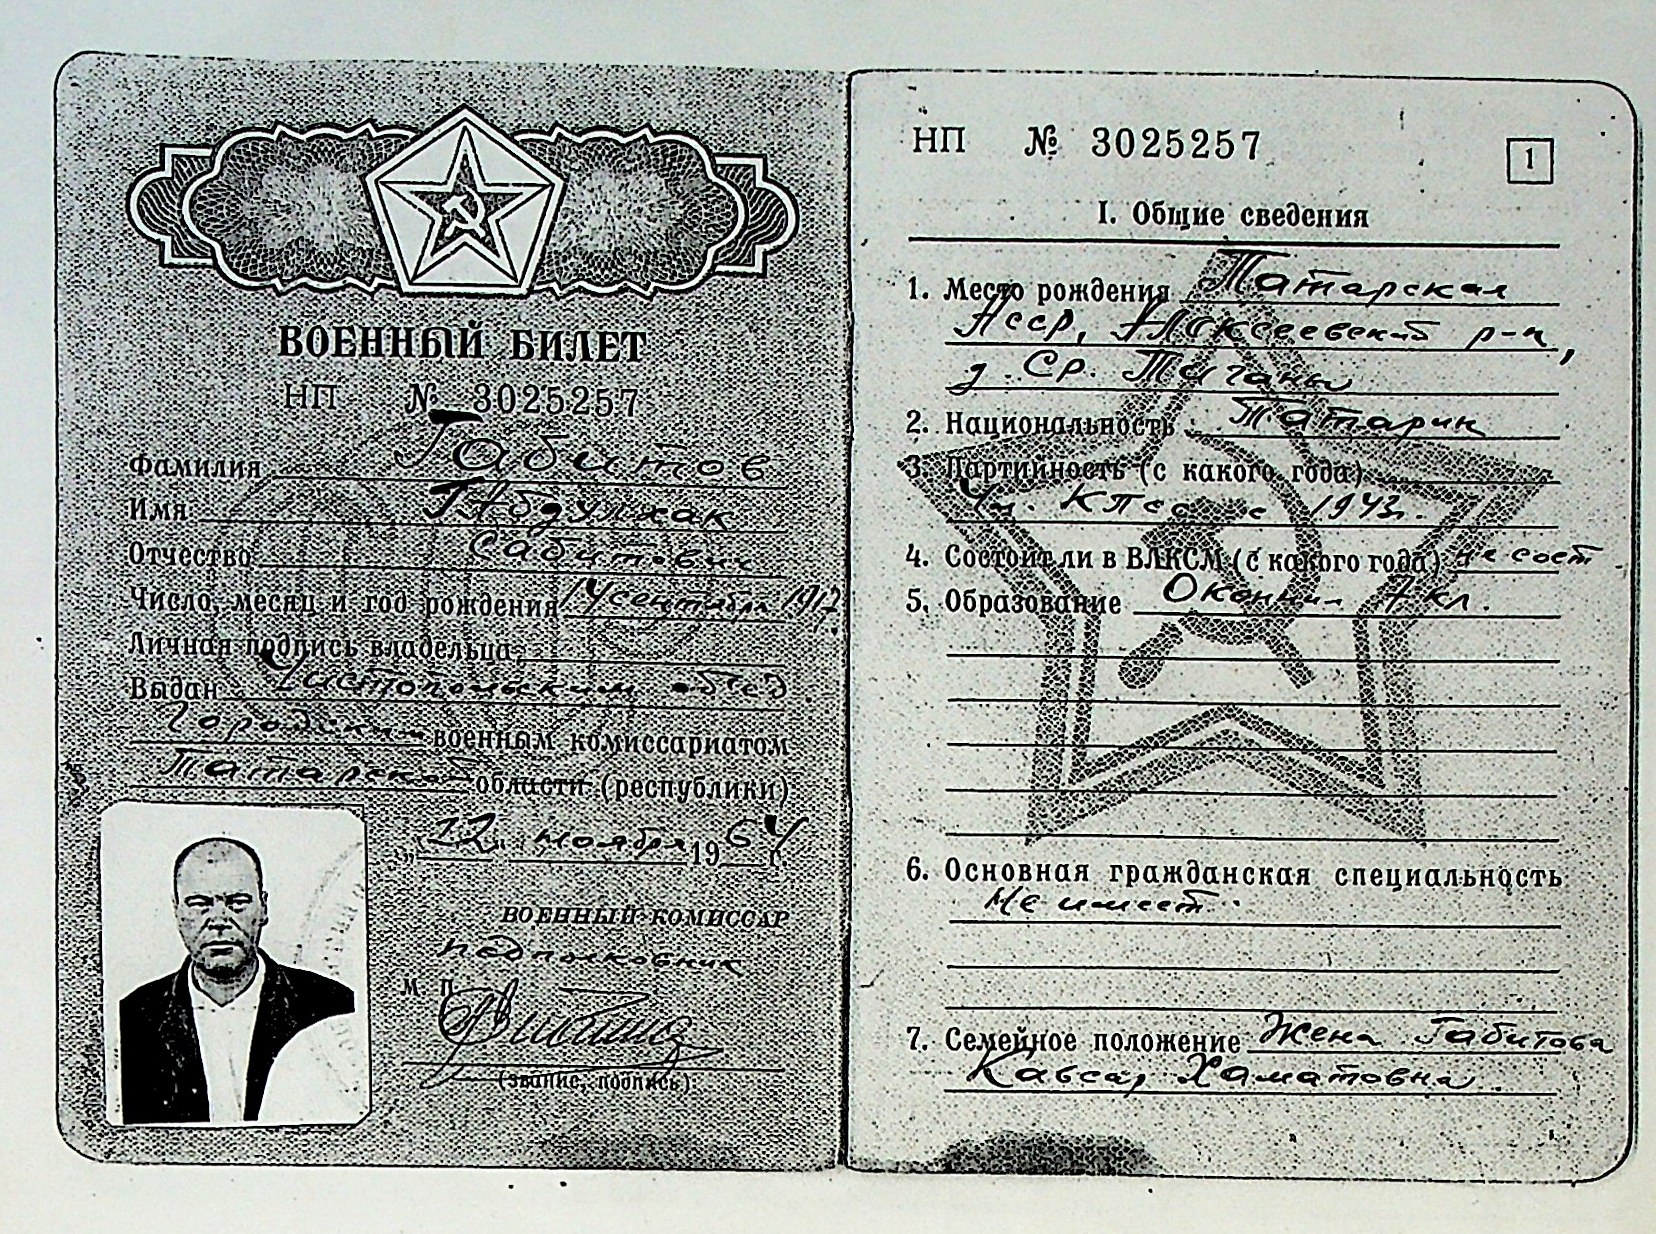 ВОЕННЫЙ БИЛЕТ
НП № 3025257
Фамилия Габитов
Имя Габдулхак
Отчество Сабитович
Число, месяц и год рождения 14 сентября 1912 г.
Личная подпись владельца
Выдан Чистопольским объед.
городским военным комиссариатом
Татарской области (республики)
„12" ноября 1964 г.
ВОЕННЫЙ КОМИССАР
подполковник
М. П.
(звание, подпись)
НП № 3025257
1
I. Общие сведения
1. Место рождения Татарская
Асср, Алексеевский р-н,
д. Ср. Тиганы
2. Национальность Татарин
3. Партийность (с какого года)
Чл. КПСС с 1943 г.
4. Состоит ли в ВЛКСМ (с какого года) не сост
5. Образование Окончил 7 кл.
6. Основная гражданская специальность
Не имеет
7. Семейное положение Жена Габитова
Кавсар Хаматовна